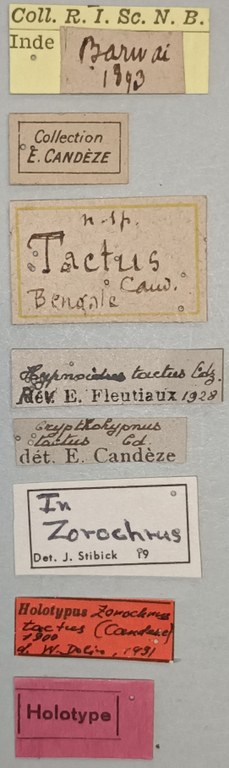 Coll. R. I. Sc. N. B.
Inde
Barwai
1893
Collection
E. CANDÈZE
n. sp.
Tactus
Cand.
Bengale
Hypnoidus tactus Cdz.
Rév. E. Fleutiaux 1928
Crypthohypnus
tactus Cd.
dét. E. Candèze
In
Zorochrus
Det. J. Stibick 79
Holotypus Zorochrus
tactus (Candeze)
1900
d. W. Dolin, 1991
Holotype